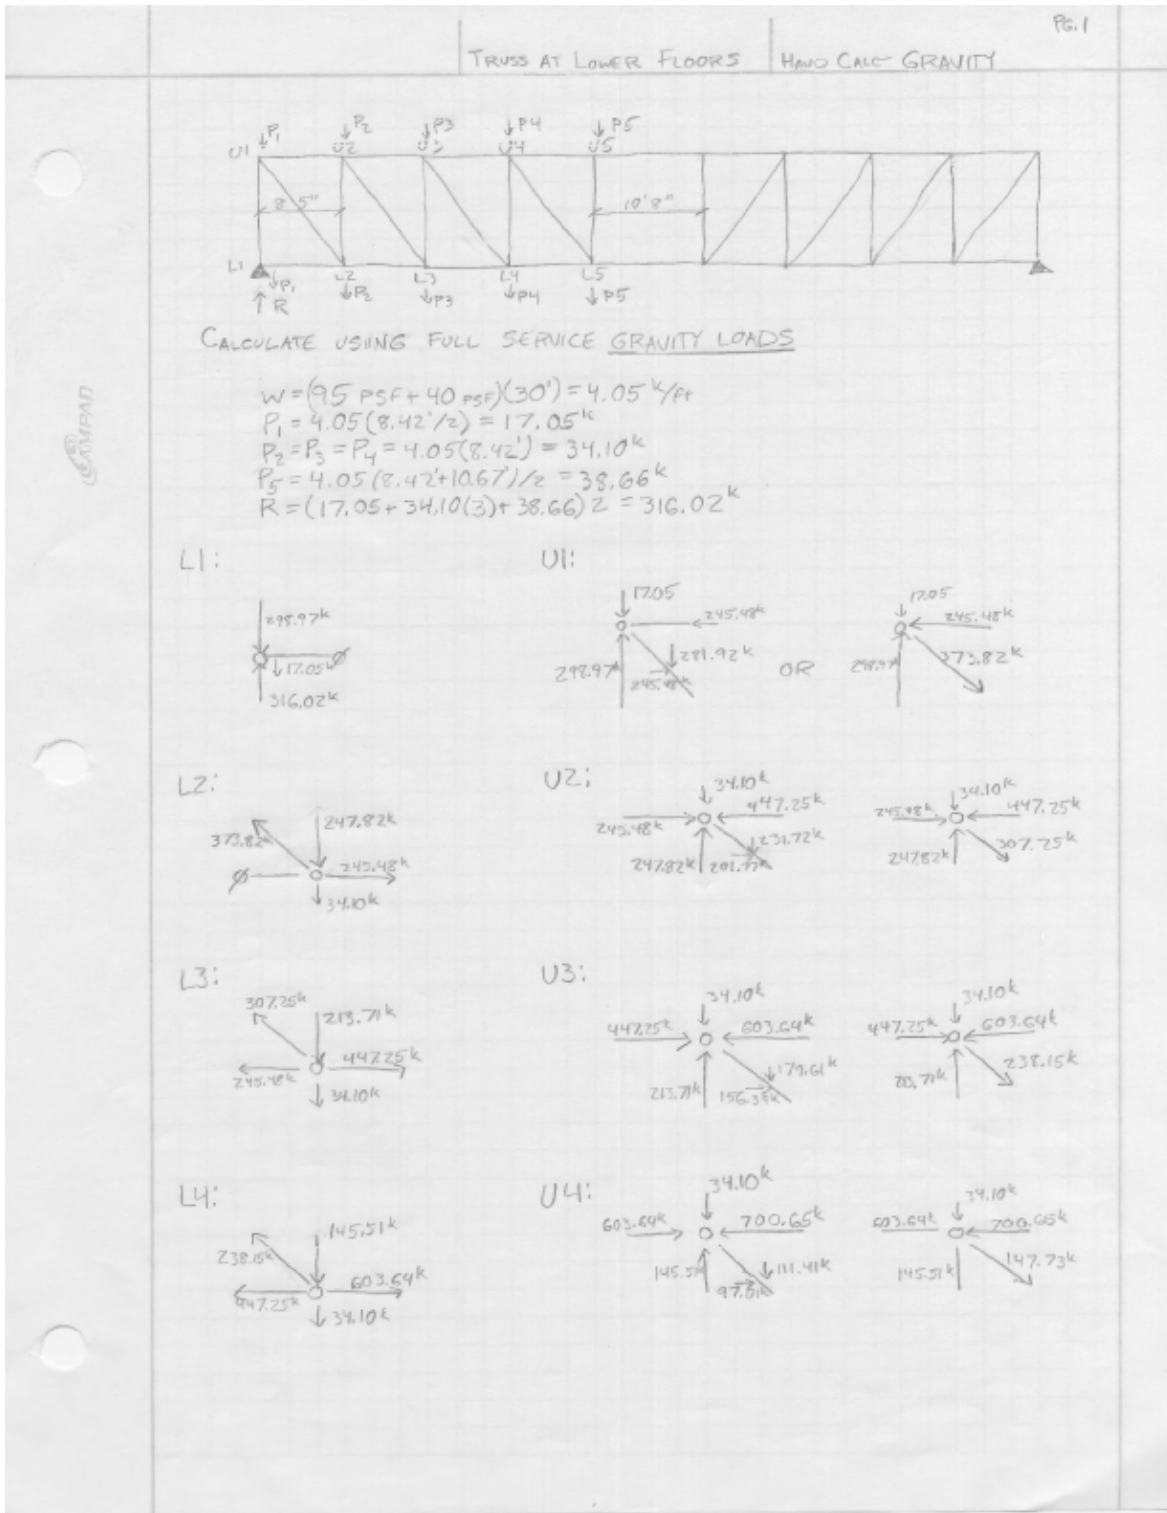 PG. 1
TRUSS AT LOWER FLOORS
HAND CALC GRAVITY
P1 P2 P3 P4 P5
U1 U2 U3 U4 U5
8'5" 10'8"
L1 L2 L3 L4 L5
P1 P2 P3 P4 P5
R
CALCULATE USIING FULL SERVICE GRAVITY LOADS
W = (95 PSF + 40 PSF)(30') = 4.05 k/ft
P1 = 4.05(8.42'/2) = 17.05k
P2 = P3 = P4 = 4.05(8.42') = 34.10k
P5 = 4.05(8.42'+10.67')/2 = 38.66k
R = (17.05 + 34.10(3) + 38.66) 2 = 316.02k
L1:
298.97k
17.05k
316.02k
U1:
17.05
245.48k
281.92k
298.97k
245.48k
OR
17.05
245.48k
373.82k
298.97
L2:
247.82k
373.82k
245.48k
34.10k
U2:
34.10k
447.25k
245.48k
231.72k
247.82k
201.77k
34.10k
245.48k
447.25k
307.25k
247.82k
L3:
307.25k
213.71k
447.25k
245.48k
34.10k
U3:
34.10k
447.25k
603.64k
179.61k
213.71k
156.39k
34.10k
447.25k
603.64k
238.15k
213.71k
L4:
145.51k
238.15k
603.64k
447.25k
34.10k
U4:
34.10k
603.64k
700.65k
111.41k
145.51k
97.01k
34.10k
603.64k
700.65k
147.73k
145.51k
AMPAD